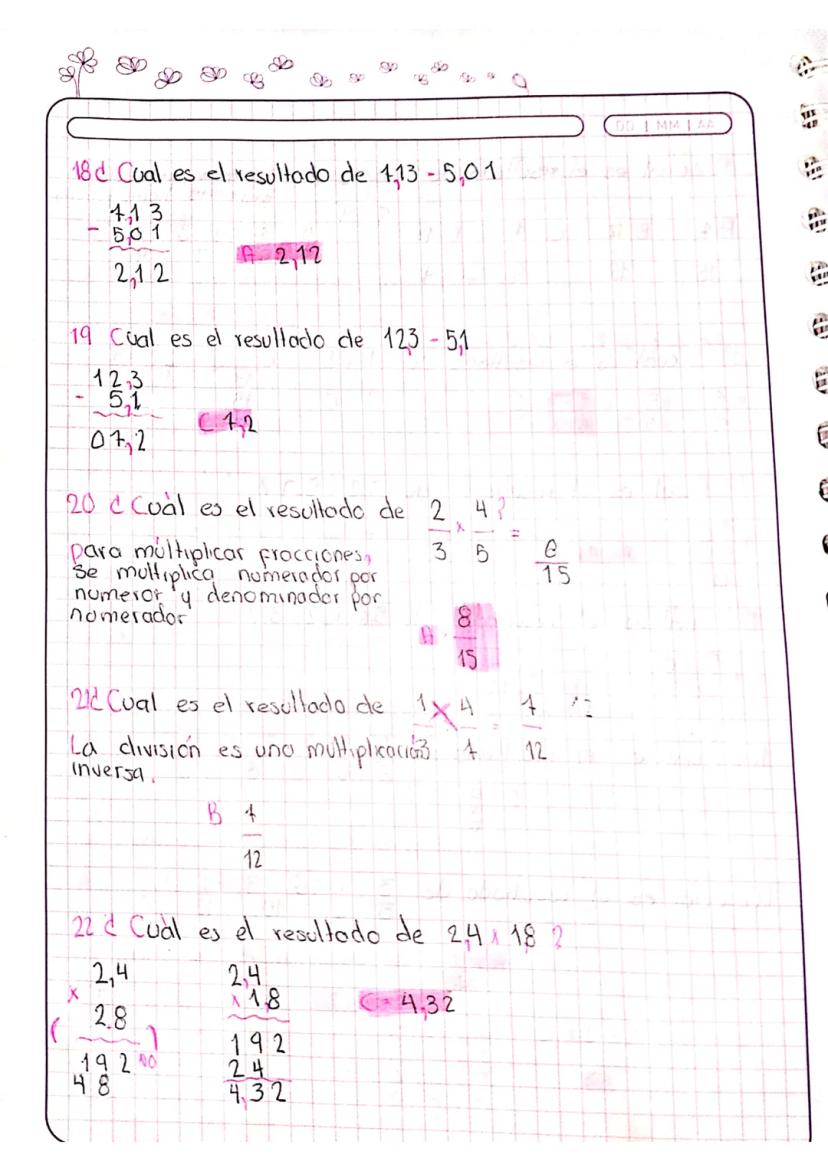 DD | MM | AA
18 ¿ Cual es el resultado de 7,13 - 5,01
7,13
- 5,01
2,12
A 2,12
19 Cual es el resultado de 12,3 - 5,1
12,3
- 5,1
07,2
C 7,2
20 ¿ Cuàl es el resultado de 2/3 x 4/5 ? = 8/15
para múltiplicar fracciones,
se multiplica numerador por
numeror y denominador por
nomerador
A. 8/15
21¿ Cual es el resultado de 1/3 X 4/7 = 7/12
La división es una multiplicación
inversa.
B 7/12
22 ¿ Cuàl es el resultado de 2,4 x 1,8 ?
2,4
x 2.8
192 no
48
2,4
x 1,8
192
24
4,32
C = 4,32